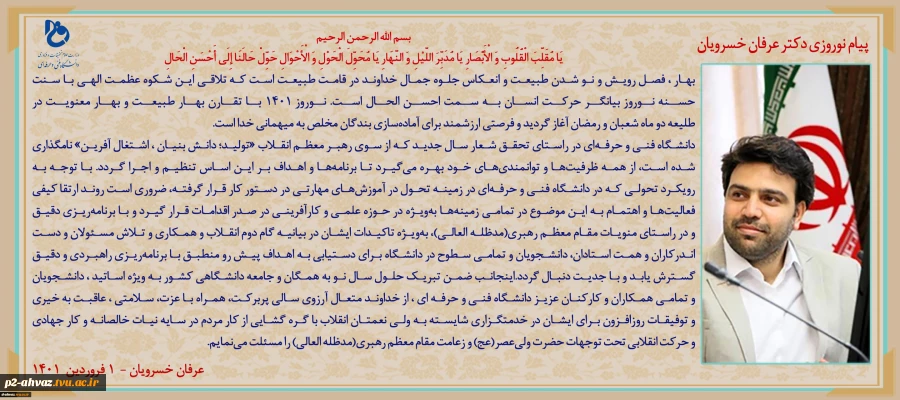 وزارت علوم تحقیقات و فناوری
دانشگاه فنی و حرفه‌ای
پیام نوروزی دکتر عرفان خسرویان
بسم الله الرحمن الرحیم
یَا مُقَلِّبَ الْقُلُوبِ وَ الْأَبْصَارِ یَا مُدَبِّرَ اللَّیْلِ وَ النَّهَارِ یَا مُحَوِّلَ الْحَوْلِ وَ الْأَحْوَالِ حَوِّلْ حَالَنَا إِلَى أَحْسَنِ الْحَالِ
بهار ، فصل رویش و نو شدن طبیعت و انعکاس جلوه جمال خداوند در قامت طبیعت است که تلاقی این شکوه عظمت الهی با سنت
حسنه نوروز بیانگر حرکت انسان به سمت احسن الحال است. نوروز ۱۴۰۱ با تقارن بهار طبیعت و بهار معنویت در
طلیعه دو ماه شعبان و رمضان آغاز گردید و فرصتی ارزشمند برای آماده‌سازی بندگان مخلص به میهمانی خدا است.
دانشگاه فنی و حرفه‌ای در راستای تحقق شعار سال جدید که از سوی رهبر معظم انقلاب «تولید؛ دانش بنیان ، اشتغال آفرین» نامگذاری
شده است، از همه ظرفیت‌ها و توانمندی‌های خود بهره می‌گیرد تا برنامه‌ها و اهداف بر این اساس تنظیم و اجرا گردد. با توجه به
رویکرد تحولی که در دانشگاه فنی و حرفه‌ای در زمینه تحول در آموزش‌های مهارتی در دستور کار قرار گرفته، ضروری است روند ارتقا کیفی
فعالیت‌ها و اهتمام به این موضوع در تمامی زمینه‌ها به‌ویژه در حوزه علمی و کارآفرینی در صدر اقدامات قرار گیرد و با برنامه‌ریزی دقیق
و در راستای منویات مقام معظم رهبری(مدظله العالی)، به‌ویژه تاکیدات ایشان در بیانیه گام دوم انقلاب و همکاری و تلاش مسئولان و دست
اندرکاران و همت استادان، دانشجویان و تمامی سطوح در دانشگاه برای دستیابی به اهداف پیش رو منطبق با برنامه‌ریزی راهبردی و دقیق
گسترش یابد و با جدیت دنبال گردد.اینجانب ضمن تبریک حلول سال نو به همگان و جامعه دانشگاهی کشور به ویژه اساتید ، دانشجویان
و تمامی همکاران و کارکنان عزیز دانشگاه فنی و حرفه ای ، از خداوند متعال آرزوی سالی پربرکت، همراه با عزت، سلامتی ، عاقبت به خیری
و توفیقات روزافزون برای ایشان در خدمتگزاری شایسته به ولی نعمتان انقلاب با گره گشایی از کار مردم در سایه نیات خالصانه و کار جهادی
و حرکت انقلابی تحت توجهات حضرت ولی‌عصر(عج) و زعامت مقام معظم رهبری(مدظله العالی) را مسئلت می‌نمایم.
عرفان خسرویان - ۱ فروردین ۱۴۰۱
p2-ahvaz.tvu.ac.ir